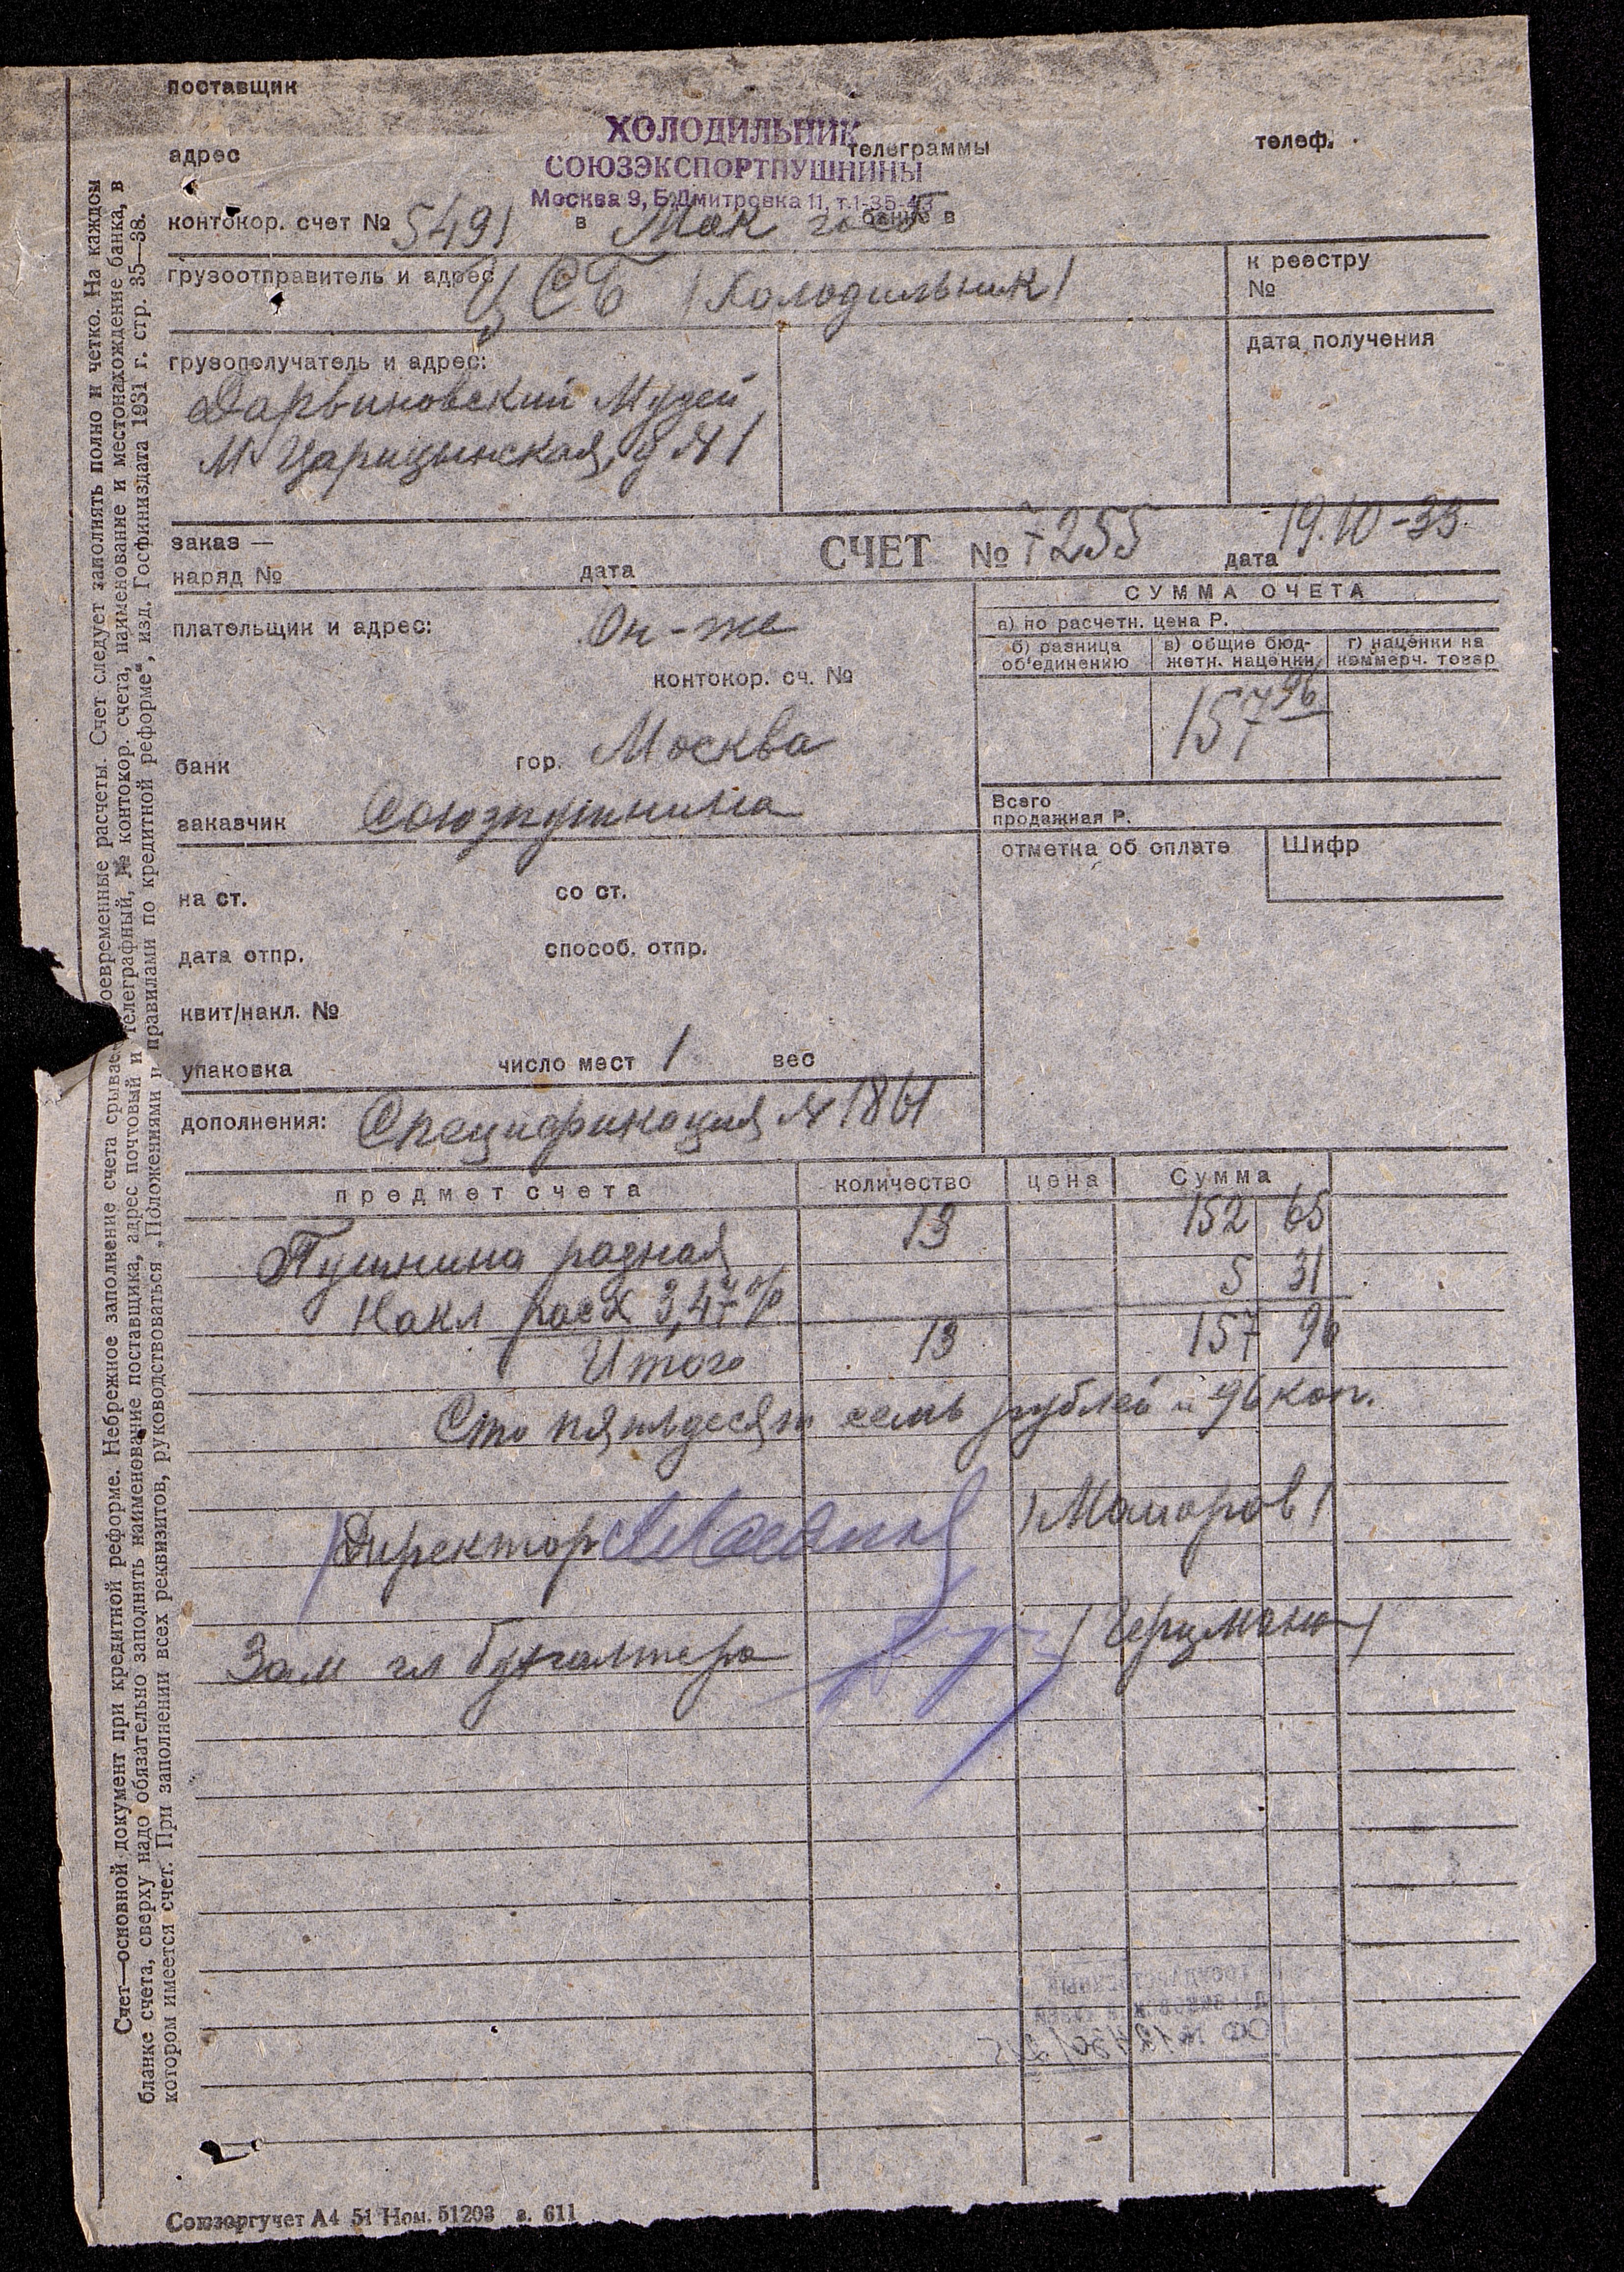 поставщик
ХОЛОДИЛЬНИК
СОЮЗЭКСПОРТПУШНИНЫ
Москва 9, Б. Дмитровка 11, т. 1-35-43
адрес
телеграммы
телеф.
контокор. счет № 5491 в банке в
грузоотправитель и адрес ЦСБ /Холодильник/
к реестру
№
грузополучатель и адрес:
Дарвиновский Музей
М Царицынская, д № 1
дата получения
заказ —
наряд №
дата
СЧЕТ № 7255 дата 19.10-33
плательщик и адрес: Он-же
контокор. сч. №
СУММА СЧЕТА
а) по расчетн. цена Р.
б) разница об'единению
в) общие бюджетн. наценки
г) наценки на коммерч. товар
157 96
банк гор. Москва
заказчик Союзпушнина
Всего
продажная Р.
отметка об оплате
Шифр
на ст. со ст.
дата отпр. способ. отпр.
квит/накл. №
упаковка число мест 1 вес
дополнения: Спецификация № 1861
предмет счета количество цена Сумма
Пушнина разная 13 152 65
Накл расх 3,47% 5 31
Итого 13 157 96
Сто пятьдесят семь рублей и 96 коп.
Директор
Зам гл бухгалтера /Герцман/
Счет—основной документ при кредитной реформе. Небрежное заполнение счета срывает своевременные расчеты. Счет следует заполнять полно и четко. На каждом
бланке счета, сверху надо обязательно заполнять наименование поставщика, адрес почтовый и телеграфный, № контокор. счета, наименование и местонахождение банка, в
котором имеется счет. При заполнении всех реквизитов, руководствоваться „Положениями и правилами по кредитной реформе“, изд. Госфиниздата 1931 г. стр. 35—38.
Союзоргучет А4 51 Ном. 51203 з. 611